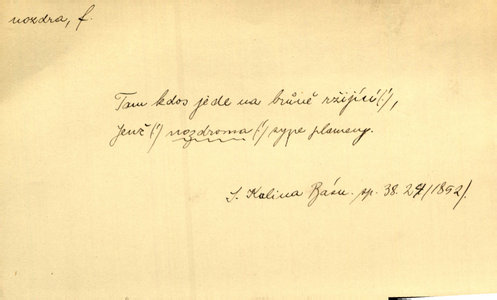 nozdra, f.
Tam kdos jede na brůně ržijící(!),
Jenž(!) nozdroma(!) sype plameny.
J. Kalina Básn. sp. 38. 24/1852/.